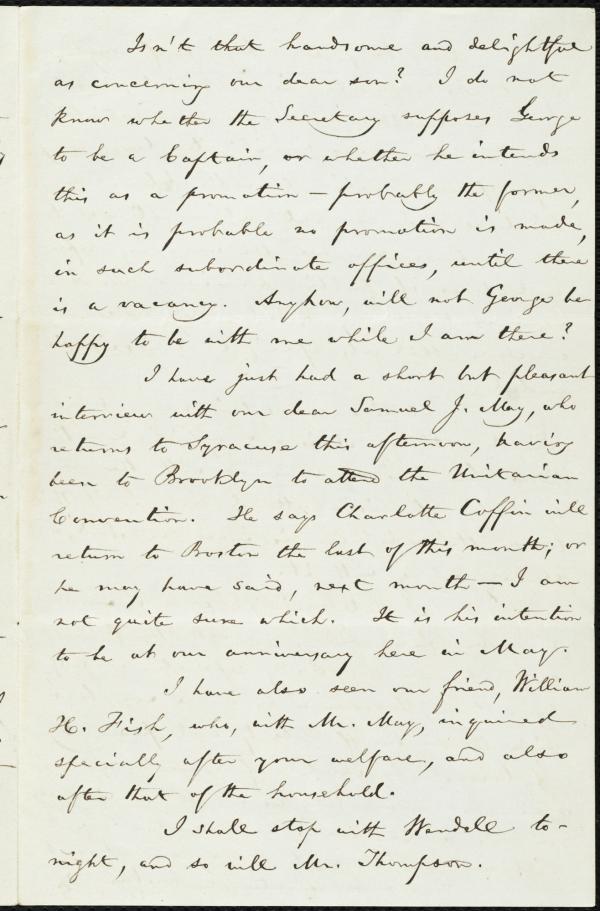 Isn't that handsome and delightful
as concerning our dear son? I do not
know whether the Secretary supposes George
to be a Captain, or whether he intends
this as a promotion — probably the former,
as it is probable no promotion is made,
in such subordinate offices, until there
is a vacancy. Anyhow, will not George be
happy to be with me while I am there?
I have just had a short but pleasant
interview with our dear Samuel J. May, who
returns to Syracuse this afternoon, having
been to Brooklyn to attend the Unitarian
Convention. He says Charlotte Coffin will
return to Boston the last of this month; or
he may have said, next month — I am
not quite sure which. It is his intention
to be at our anniversary here in May.
I have also seen our friend, William
H. Fish, who, with Mr. May, inquired
specially after your welfare, and also
after that of the household.
I shall stop with Wendell to-
night, and so will Mr. Thompson.